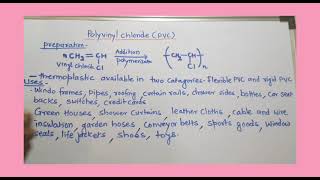 Polyvinyl chloride (PVC)
preparation:-
nCH2=CH Addition (CH2-CH)n
Cl polymerization Cl
vinyl chloride
-thermoplastic available in two categories- flexible PVC and rigid PVC
Uses:-
-Windo frames, Pipes, roofing, curtain rails, drawer sides, bottles, Car seat
backs, switches, credit cards
Green Houses, shower curtains leather cloths, cable and wire
insulation, garden hoses conveyor belts, sports goods, window
seals, life jackets, shoes, toys.